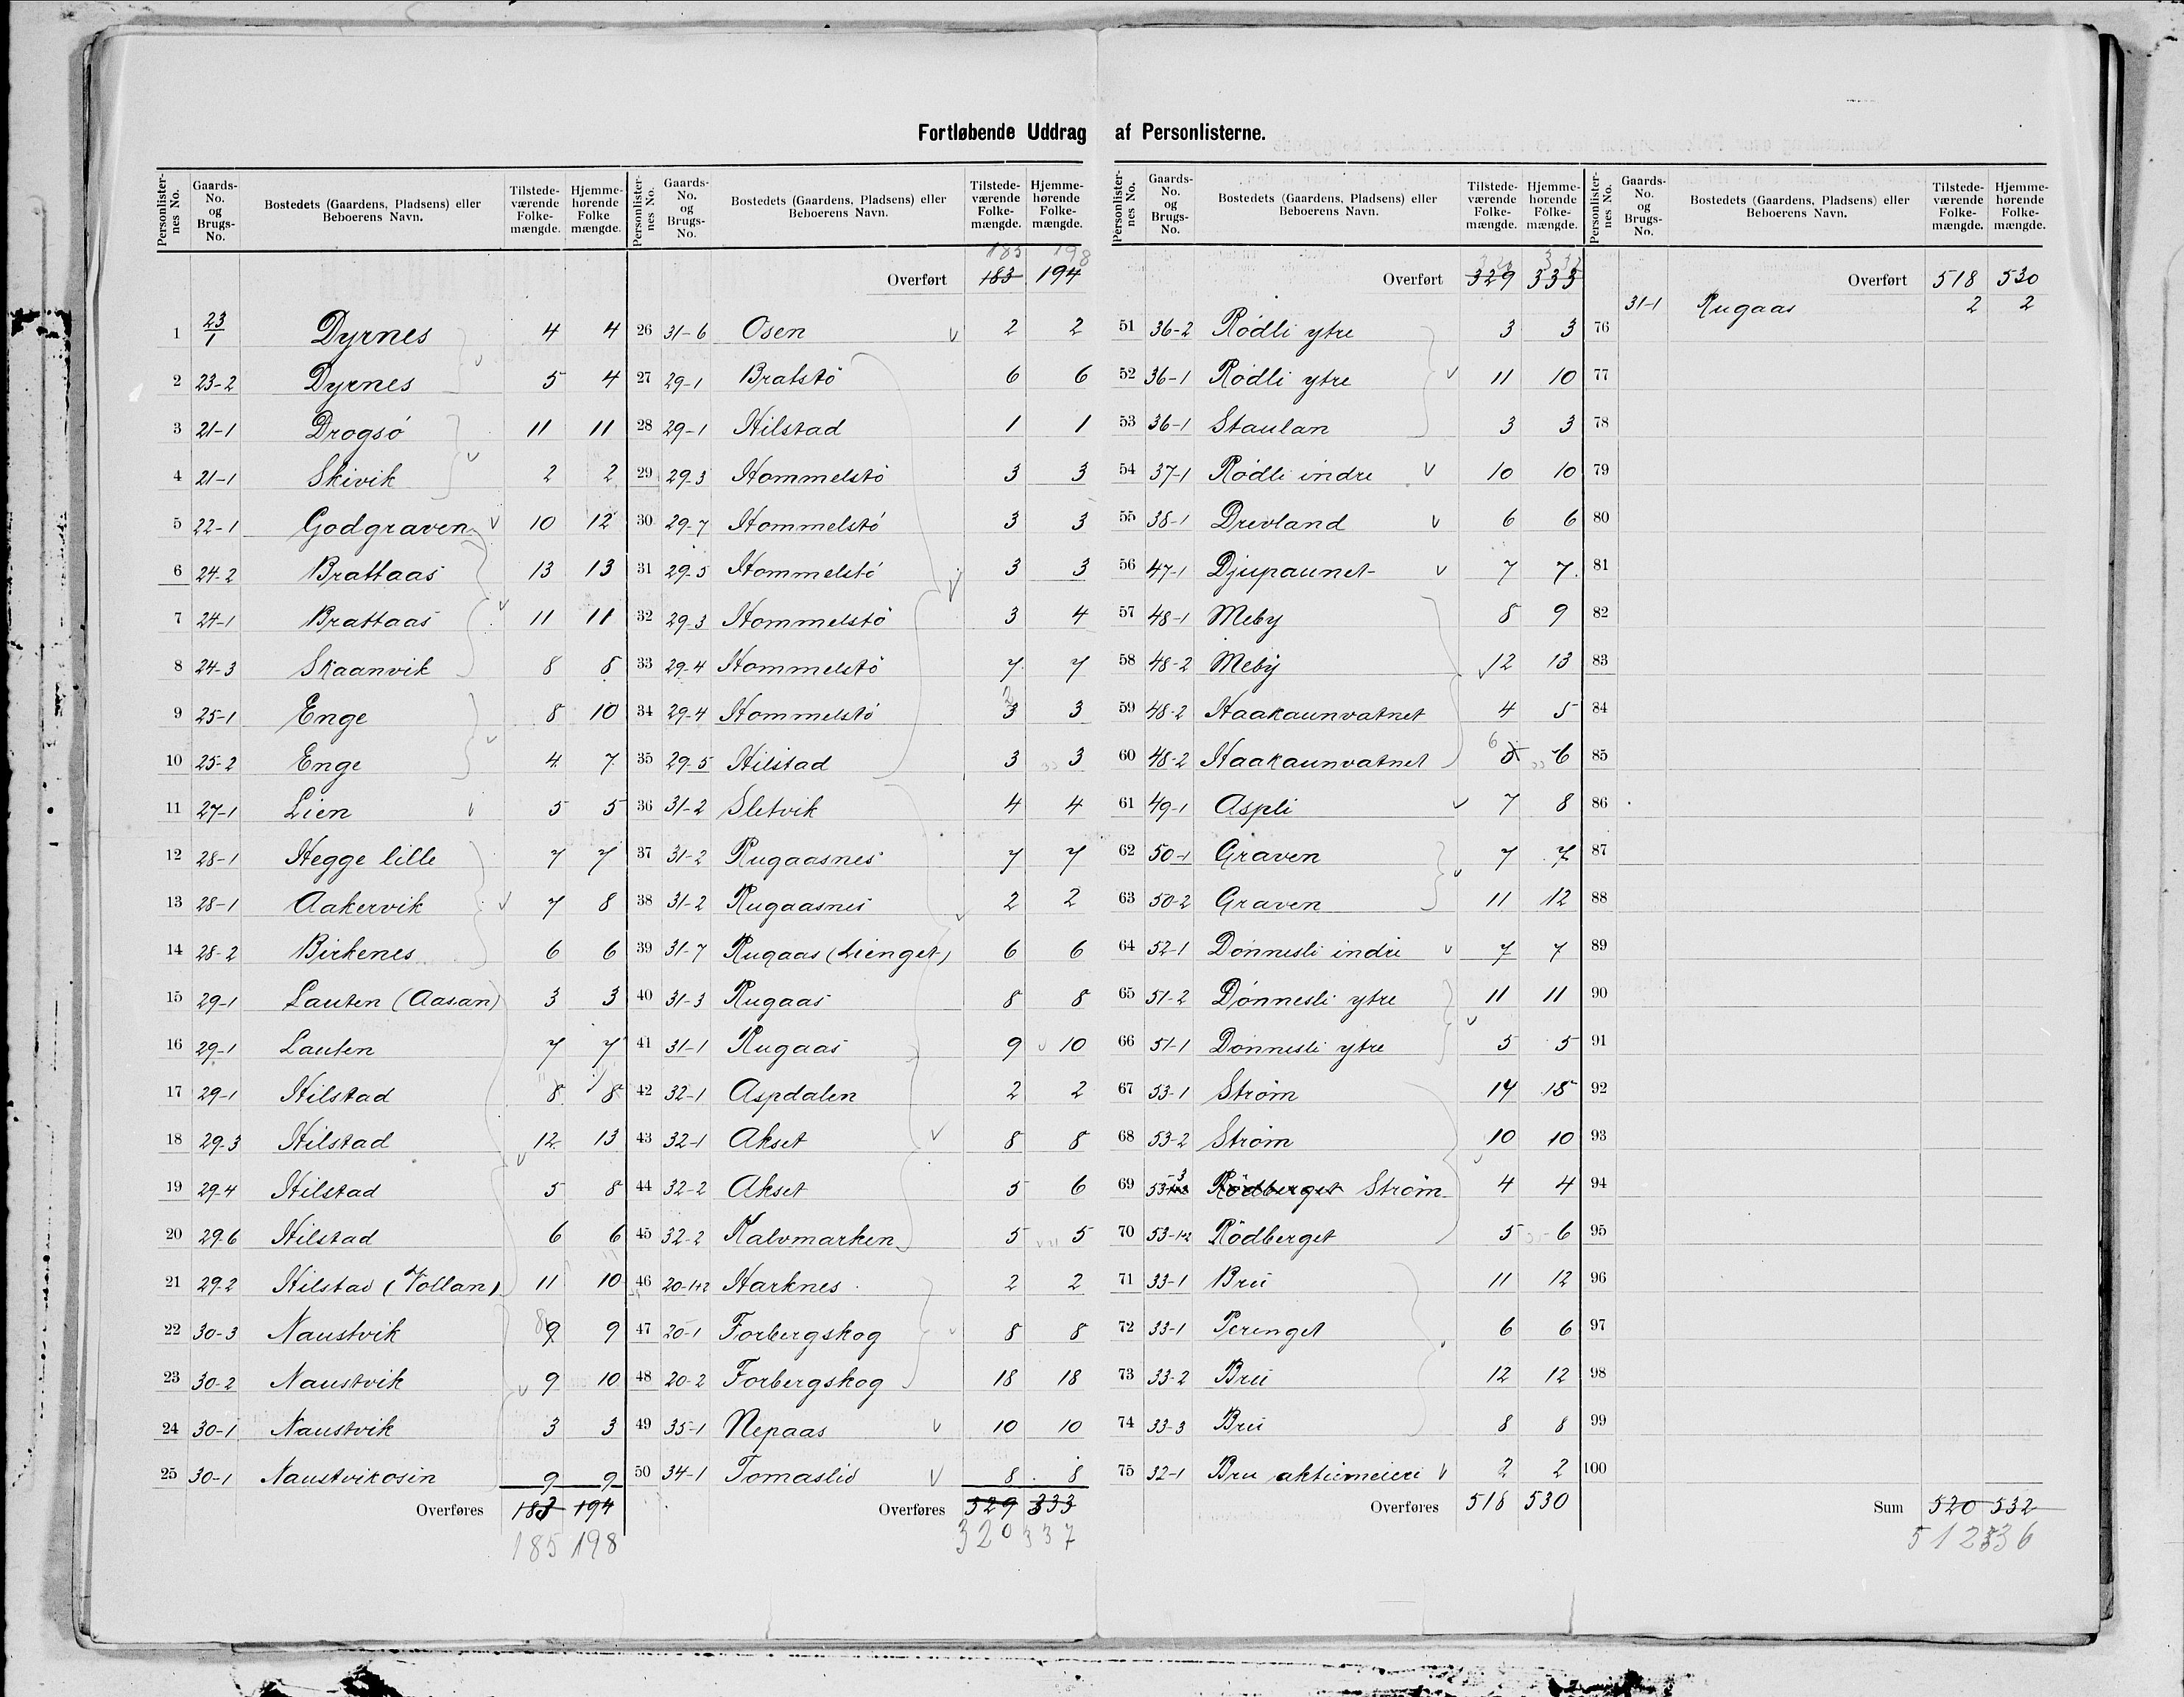 Fortløbende Uddrag af Personlisterne.
Personlisternes No. Gaards-No. og Brugs-No. Bostedets (Gaardens, Pladsens) eller Beboerens Navn. Tilstedeværende Folkemængde. Hjemmehørende Folkemængde.
1 23/1 Dyrnes 4 4
2 23-2 Dyrnes 5 4
3 21-1 Drogsö 11 11
4 21-1 Skivik 2 2
5 22-1 Godgraven 10 12
6 24-2 Brattaas 13 13
7 24-1 Brattaas 11 11
8 24-3 Skaanvik 8 8
9 25-1 Enge 8 10
10 25-2 Enge 4 7
11 27-1 Lien 5 5
12 28-1 Hegge lille 7 7
13 28-1 Aakervik 7 8
14 28-2 Birkenes 6 6
15 29-1 Lauten (Aasan) 3 3
16 29-1 Lauten 7 7
17 29-1 Hilstad 8 8
18 29-3 Hilstad 12 13
19 29-4 Hilstad 5 8
20 29-6 Hilstad 6 6
21 29-2 Hilstad (Vollan) 11 10
22 30-3 Naustvik 9 9
23 30-2 Naustvik 9 10
24 30-1 Naustvik 3 3
25 30-1 Naustvikosin 9 9
Overføres 183 194
185 198
Personlisternes No. Gaards-No. og Brugs-No. Bostedets (Gaardens, Pladsens) eller Beboerens Navn. Tilstedeværende Folkemængde. Hjemmehørende Folkemængde.
185 198
Overført 183 194
26 31-6 Osen 2 2
27 29-1 Bratstö 6 6
28 29-1 Hilstad 1 1
29 29-3 Hommelstö 3 3
30 29-7 Hommelstö 3 3
31 29-5 Hommelstö 3 3
32 29-3 Hommelstö 3 4
33 29-4 Hommelstö 7 7
34 29-4 Hommelstö 3 3
35 29-5 Hilstad 3 3
36 31-2 Sletvik 4 4
37 31-2 Rugaasnes 7 7
38 31-2 Rugaasnes 2 2
39 31-7 Rugaas (Lienget) 6 6
40 31-3 Rugaas 8 8
41 31-1 Rugaas 9 10
42 32-1 Aspdalen 2 2
43 32-1 Akset 8 8
44 32-2 Akset 5 6
45 32-2 Kalvmarken 5 5
46 20-1+2 Harknes 2 2
47 20-1 Forbergskog 8 8
48 20-2 Forbergskog 18 18
49 35-1 Nepaas 10 10
50 34-1 Tomaslid 8 8
Overføres 329 333
320 337
Personlisternes No. Gaards-No. og Brugs-No. Bostedets (Gaardens, Pladsens) eller Beboerens Navn. Tilstedeværende Folkemængde. Hjemmehørende Folkemængde.
Overført 329 333
51 36-2 Rödli ytre 3 3
52 36-1 Rödli ytre 11 10
53 36-1 Staulan 3 3
54 37-1 Rödli indre 10 10
55 38-1 Drevland 6 6
56 47-1 Djupaunet 7 7
57 48-1 Meby 8 9
58 48-2 Meby 12 13
59 48-2 Haakaunvatnet 4 5
60 48-2 Haakaunvatnet 6 6
61 49-1 Aspli 7 8
62 50-1 Graven 7 7
63 50-2 Graven 11 12
64 52-1 Dönnesli indre 7 7
65 51-2 Dönnesli ytre 11 11
66 51-1 Dönnesli ytre 5 5
67 53-1 Ström 14 15
68 53-2 Ström 10 10
69 53-3 Rödberget Ström 4 4
70 53-1+2 Rödberget 5 6
71 33-1 Bru 11 12
72 33-1 Perenget 6 6
73 33-2 Bru 12 12
74 33-3 Bru 8 8
75 32-1 Bru aktiemeieri 2 2
Overføres 518 530
Personlisternes No. Gaards-No. og Brugs-No. Bostedets (Gaardens, Pladsens) eller Beboerens Navn. Tilstedeværende Folkemængde. Hjemmehørende Folkemængde.
Overført 518 530
31-1 Rugaas 2 2
76
77
78
79
80
81
82
83
84
85
86
87
88
89
90
91
92
93
94
95
96
97
98
99
100
Sum 520 532
512 536